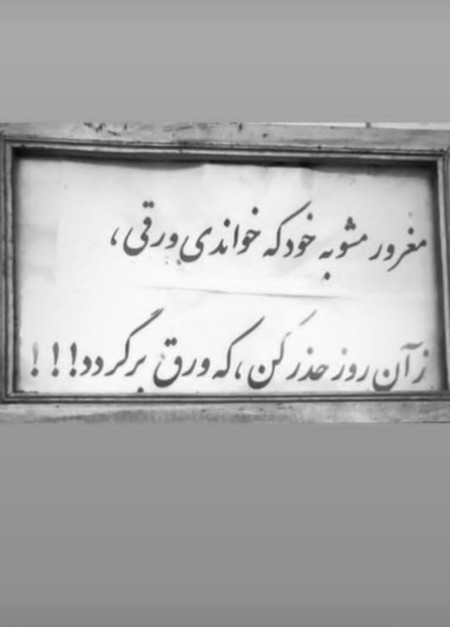 مغرور مشو به خود که خواندی ورقی،
زآن روز حذر کن، که ورق برگردد!!!